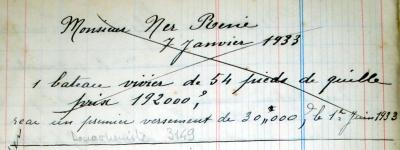 Monsieur Ner René
7 Janvier 1933
1 bateau vivier de 54 pieds de quille
prix 192000,
reçu un premier versement de 30,000, le 1er Juin 1933
3149